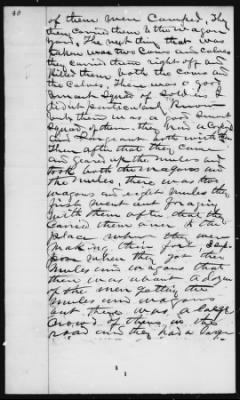 40
of them men Camped, They
they carried them to the wagon
yard, The next thing that was
taken was two Cows and calves
they carried them right off and
killed them both the cows and
the calves. There was a good
smart squad of soldiers. I
didnt particularly know
but them was a good smart
squad of them, they had a Corp'l
and sergeant both with them
Then after that they came
and geared up the mules and
took both the wagons and
the mules, there was two
wagons and eight mules they
first went out foraging
with them after that they
carried them over to the
place where the men
making their fort, I sup-
pose when they got the
mules and wagons that
there was about a dozen
of the men getting the
mules and wagons
but there was a large
crowd of them in the
road and they had a large